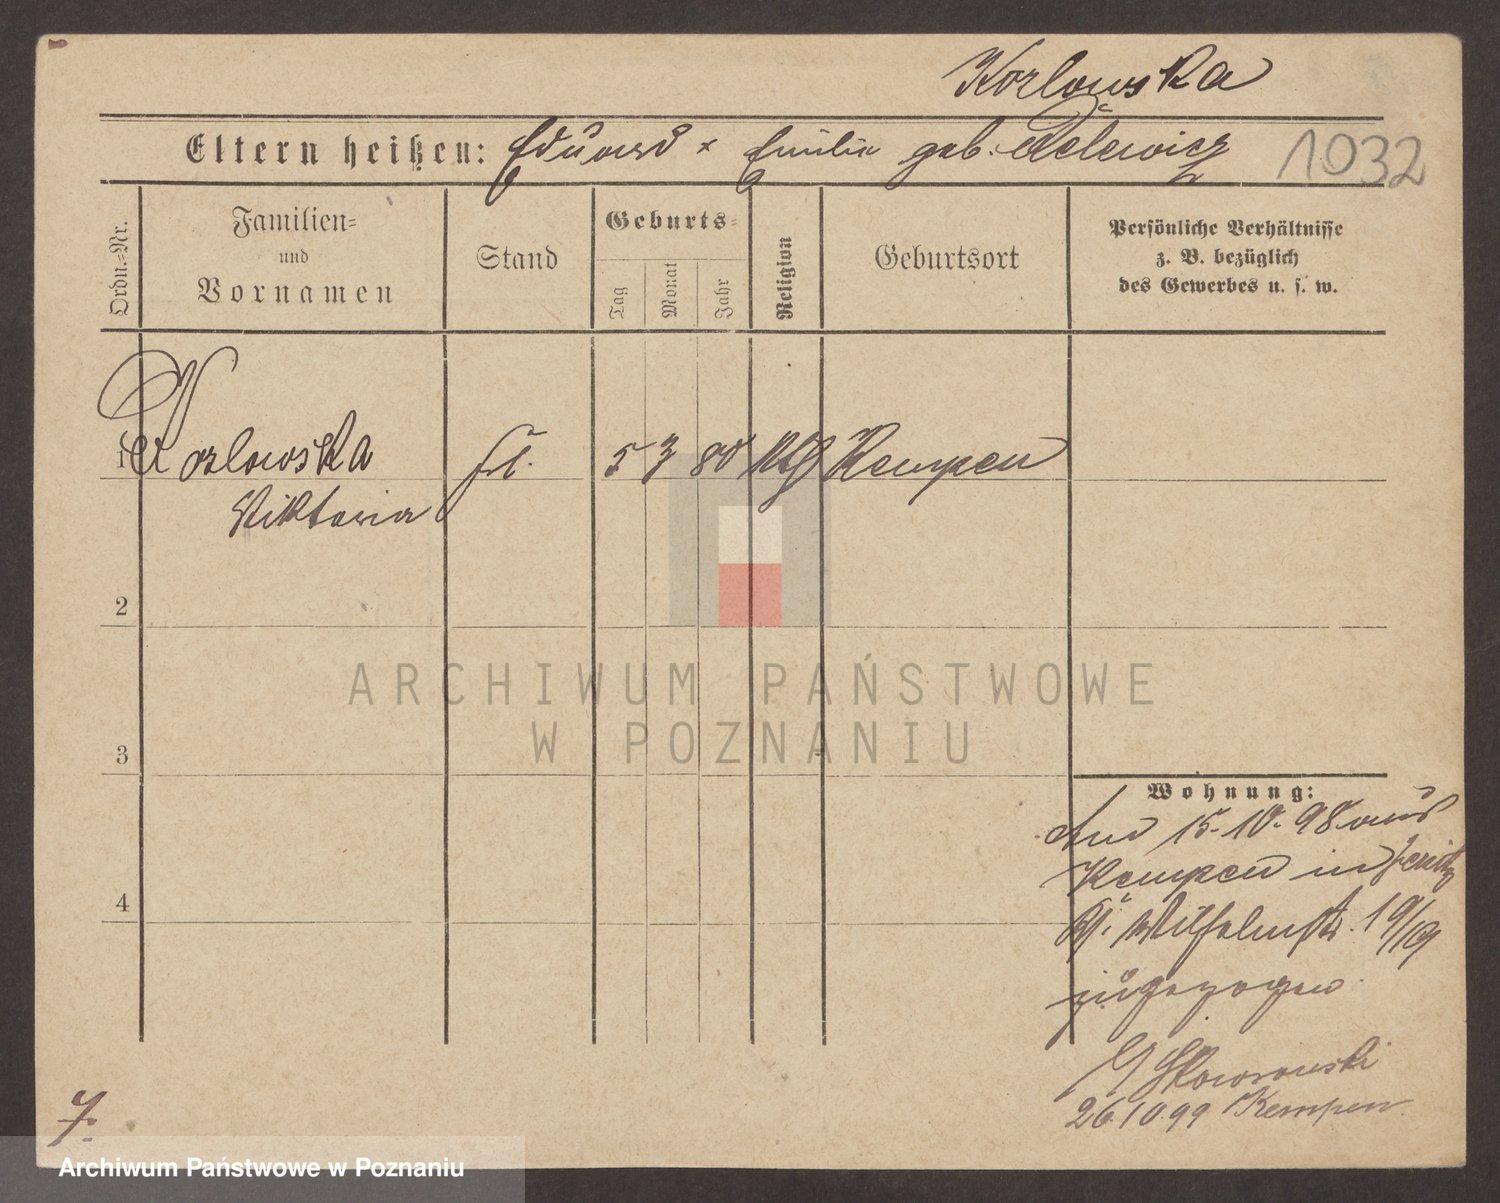 Kozlowska
Eltern heißen: Eduard & Emilie geb.
1032
Ordn.=Nr.
Familien=
und
Vornamen
Stand
Geburts=
Tag
Monat
Jahr
Religion
Geburtsort
Persönliche Verhältnisse
z. B. bezüglich
des Gewerbes u. s. w.
1
Kozlowska
Viktoria
frl.
5 3 80 kth Kempen
2
ARCHIWUM PAŃSTWOWE
W POZNANIU
3
Wohnung:
15.10.98 aus
Kempen in Jersitz
Wilhelmstr. 19/
zugezogen
Skoworonski
26.10.99 Kempen
4
7.
Archiwum Państwowe w Poznaniu